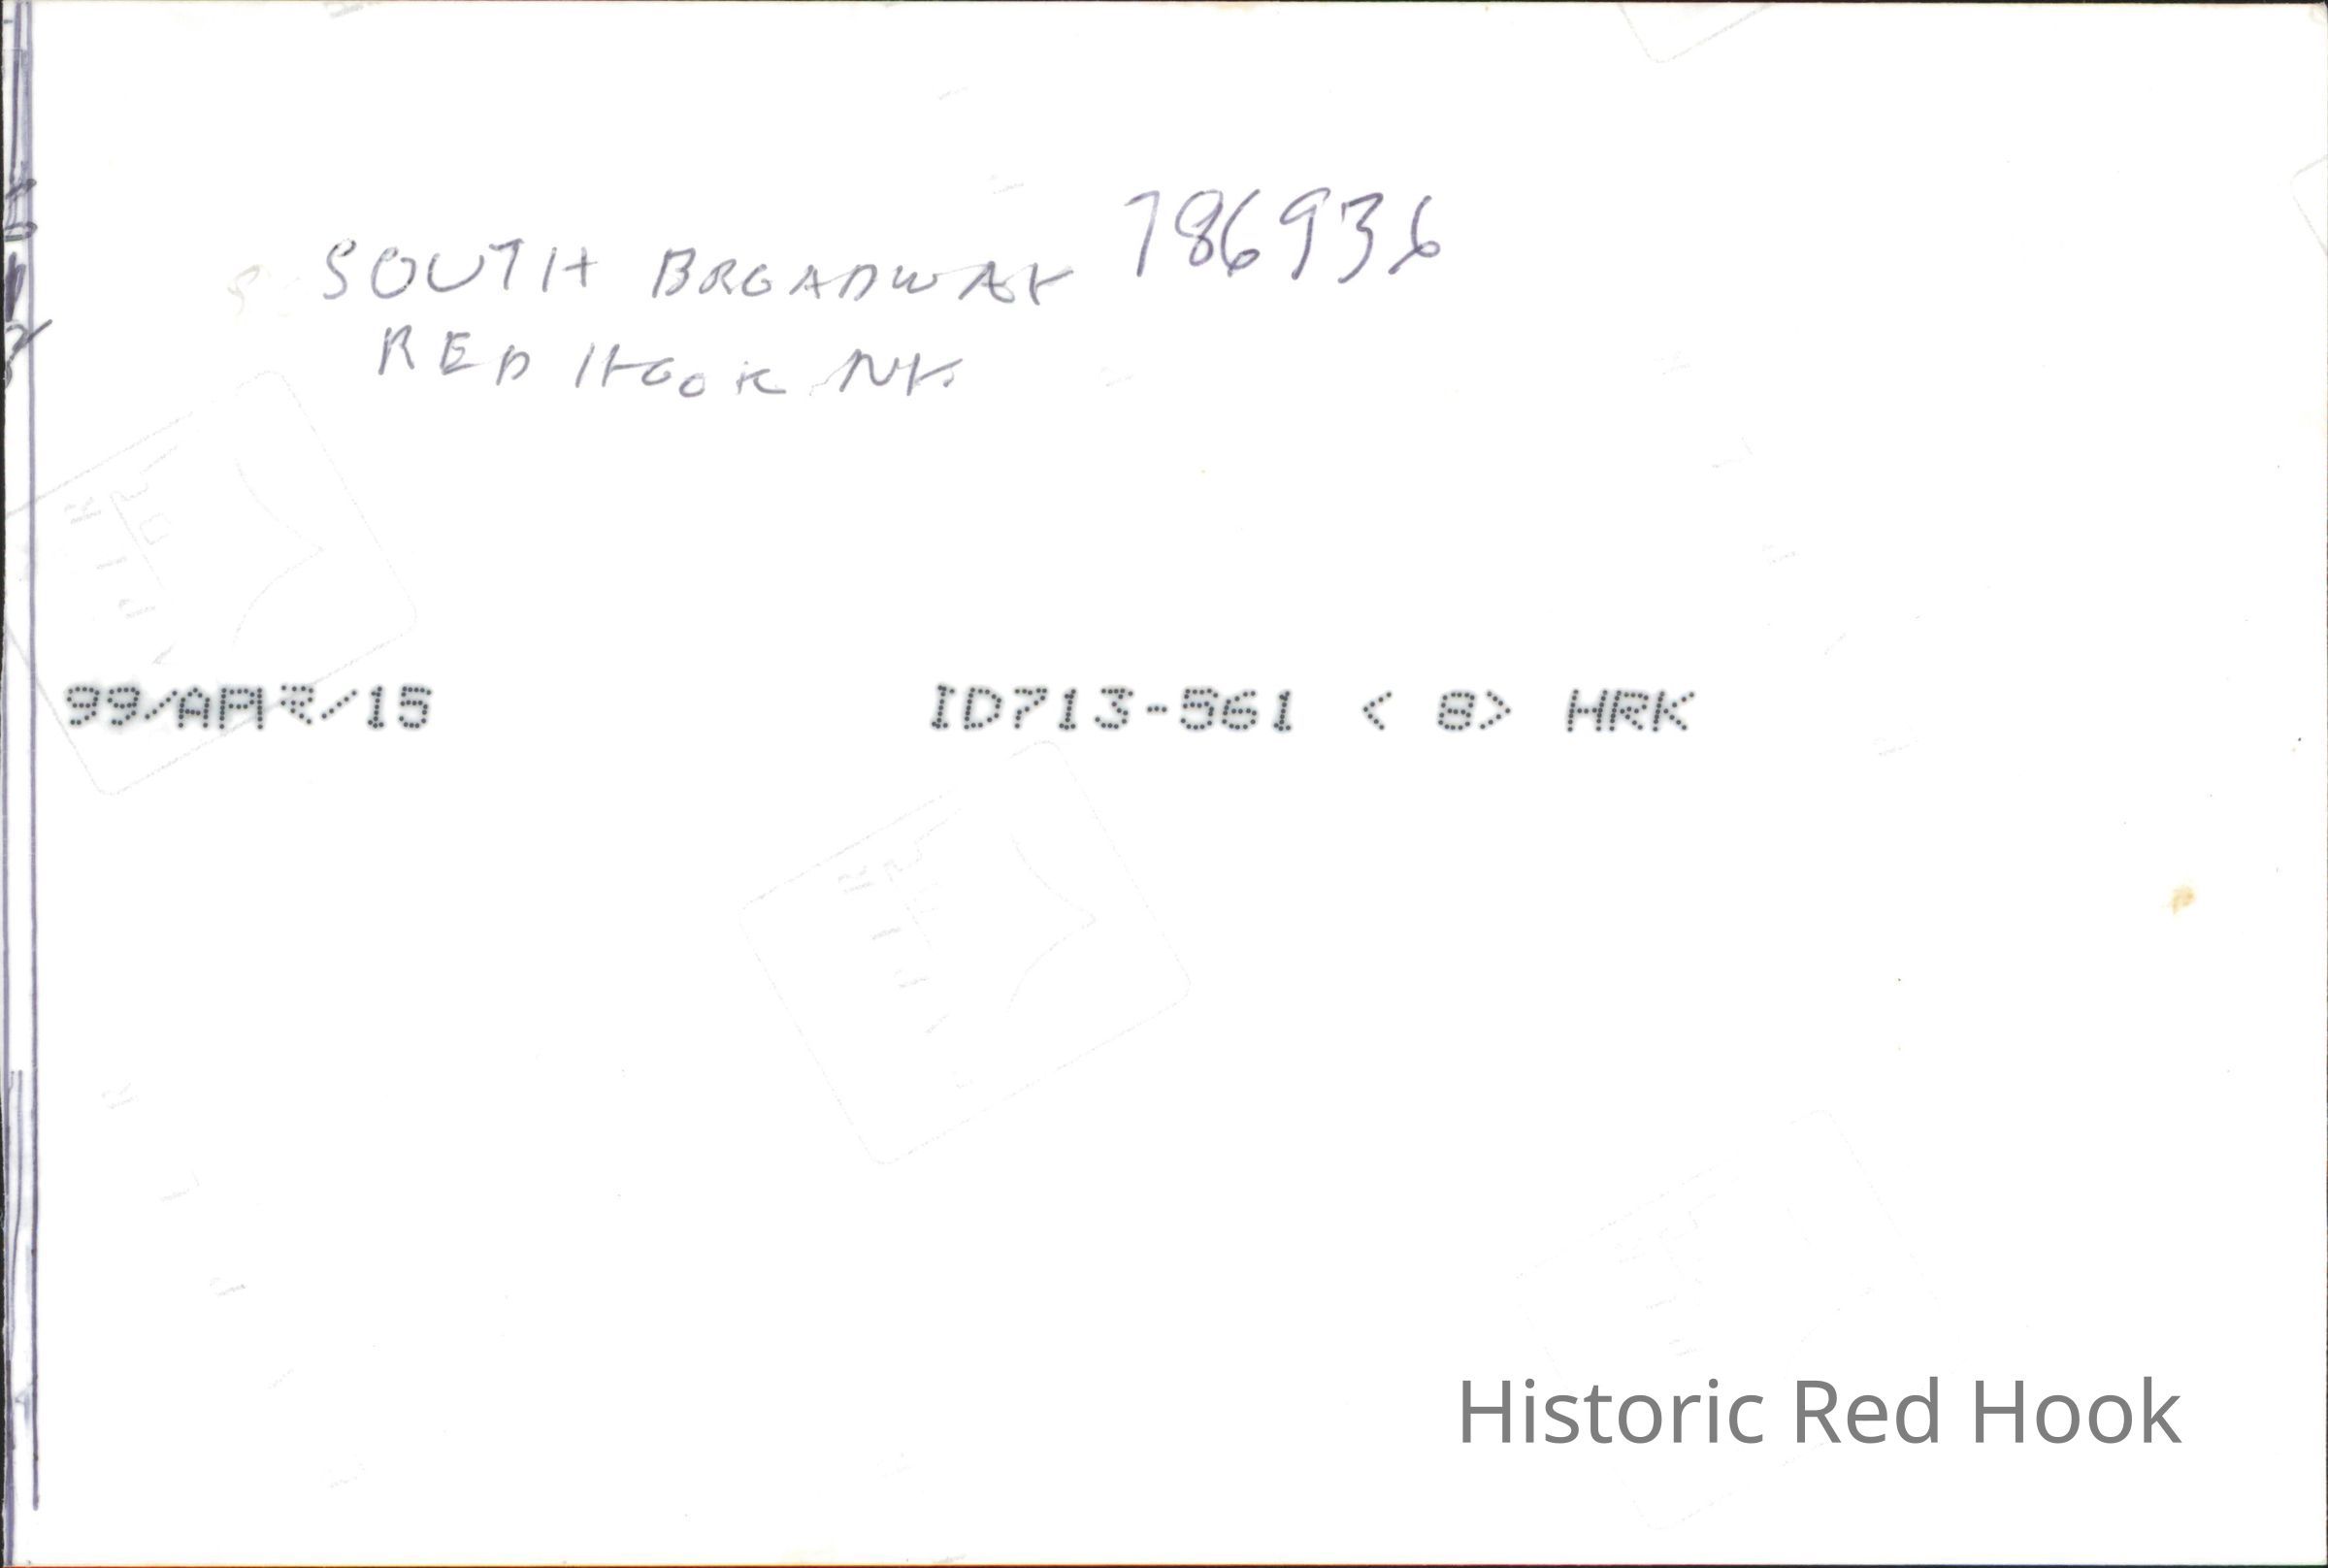 SOUTH BROADWAY 786936
RED HOOK NY.
99/APR/15 ID713-561 < 8> HRK
Historic Red Hook